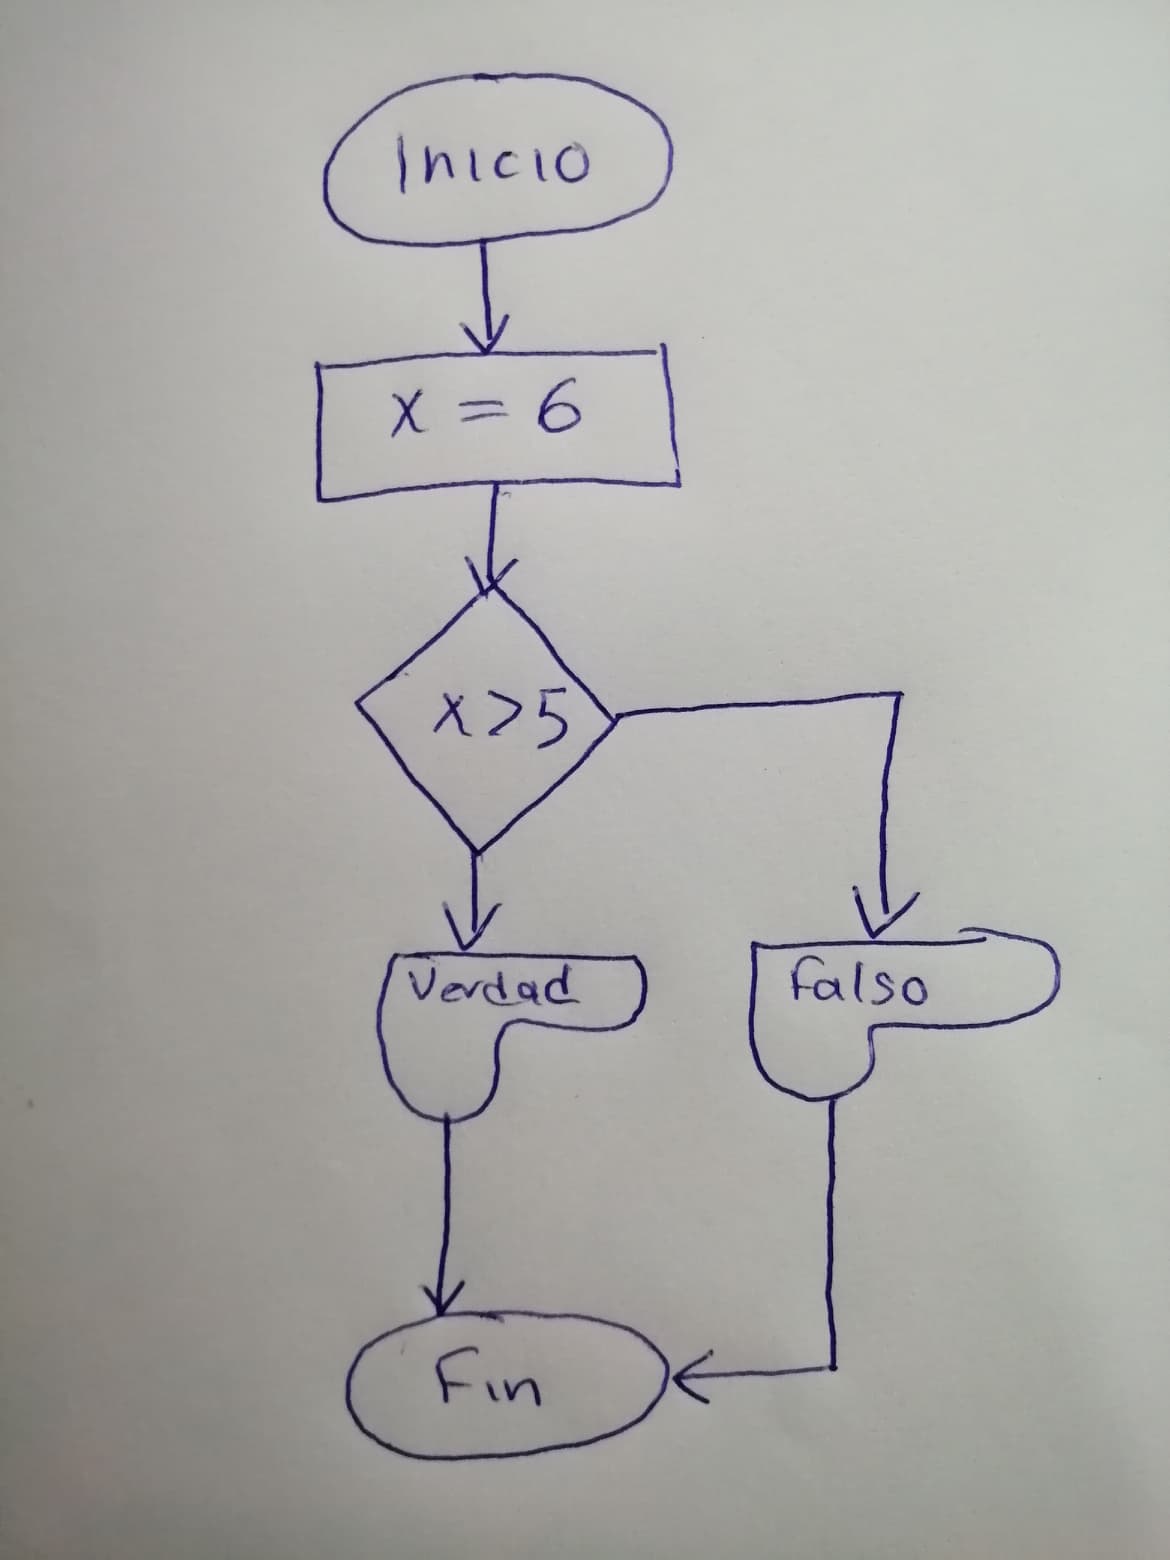 Inicio
x = 6
x>5
Verdad
falso
Fin